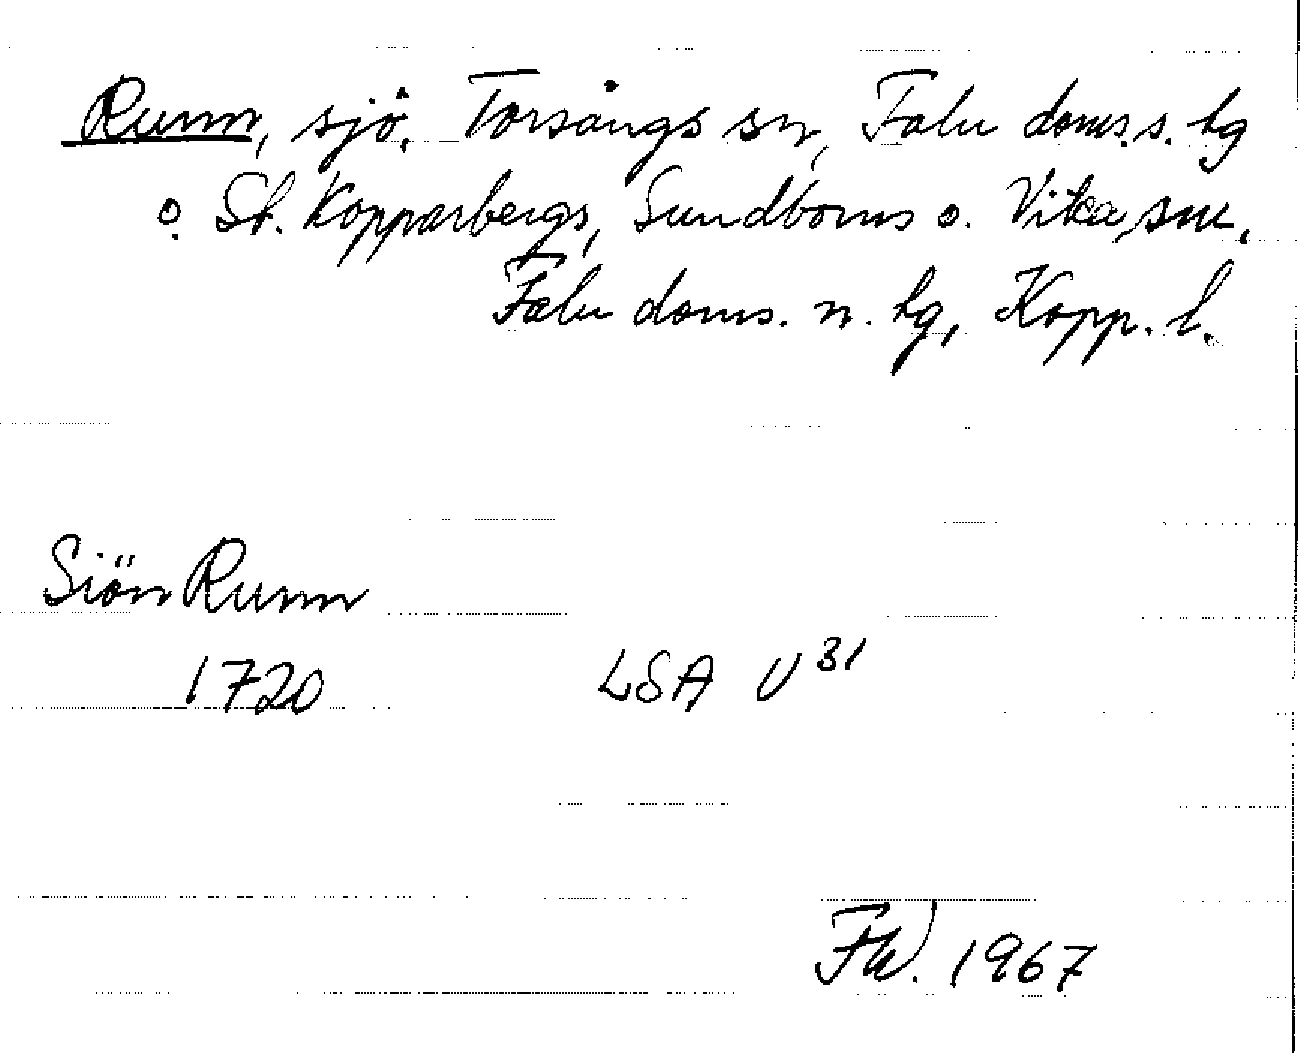 Runn, sjö. Torsångs sn, Falu doms. s. tg
o. St. Kopparbergs, Sundborns o. Vika snr,
Falu doms. n. tg, Kopp. l.
Siön Runn
1720 LSA U 31
1967